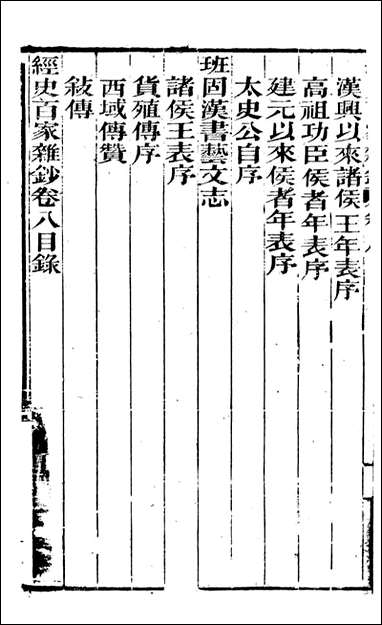 漢興以來諸侯王年表序
高祖功臣侯者年表序
建元以來侯者年表序
太史公自序
班固漢書藝文志
諸侯王表序
貨殖傳序
西域傳贊
敍傳
經史百家雜鈔卷八目錄